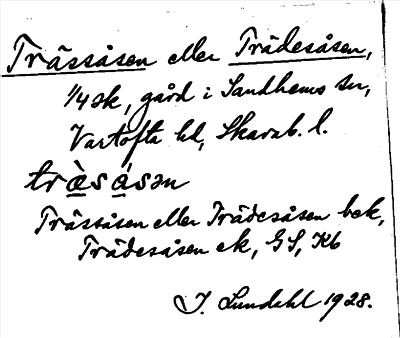 Trässåsen eller Trädesåsen,
1/4 sk, gård i Sandhems sn,
Vartofta hd, Skarab. l.
trèsåsən
Trässåsen eller Trädesåsen bek,
Trädesåsen ek, GS, Kb
I. Lundahl 1928.